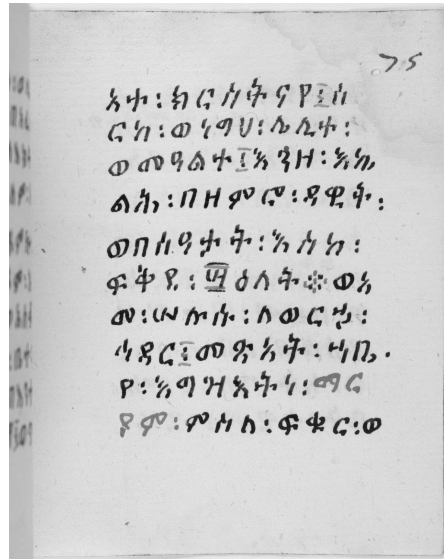 እተ፡ክርስትናየ፤ሰ
ርከ፡ወነግህ፡ሌሊተ፡
ወመዓልተ፤እንዘ፡እኬ
ልሕ፡በዘምሮ፡ዳዊት፡
ወበሰዓታት፡እስከ፡
ዕለት፨ወእ
መ፡ሠሉሱ፡ለወርኃ፡
ኅዳር፤መጽአት፡ኀቤ
የ፡እግዝእትነ፡ማር
ያም፡ምስለ፡ፍቁር፡ወ